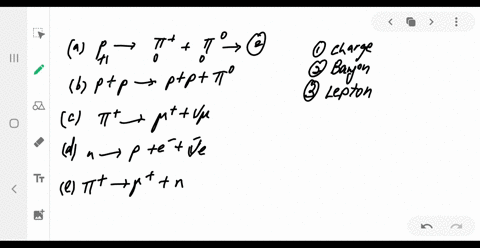 (a) p → π⁺ + π⁰ → ②
+1 0 0
(b) p + p → p + p + π⁰
(c) π⁺ → μ⁺ + νμ
(d) n → p + e⁻ + ν̄e
(e) π⁺ → μ⁺ + n
① charge
② Baryon
③ Lepton